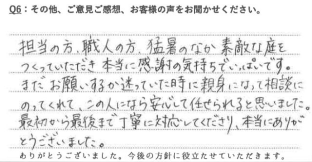 Q6：その他、ご意見ご感想、お客様の声をお聞かせください。
担当の方、職人の方、猛暑のなか素敵な庭を
つくっていただき本当に感謝の気持ちでいっぱいです。
まだお願いするか迷っていた時に親身になって相談に
のってくれて、この人になら安心して任せられると思いました。
最初から最後まで丁寧に対応してくださり、本当にありが
とうございました。
ありがとうございました。今後の方針に役立たせていただきます。